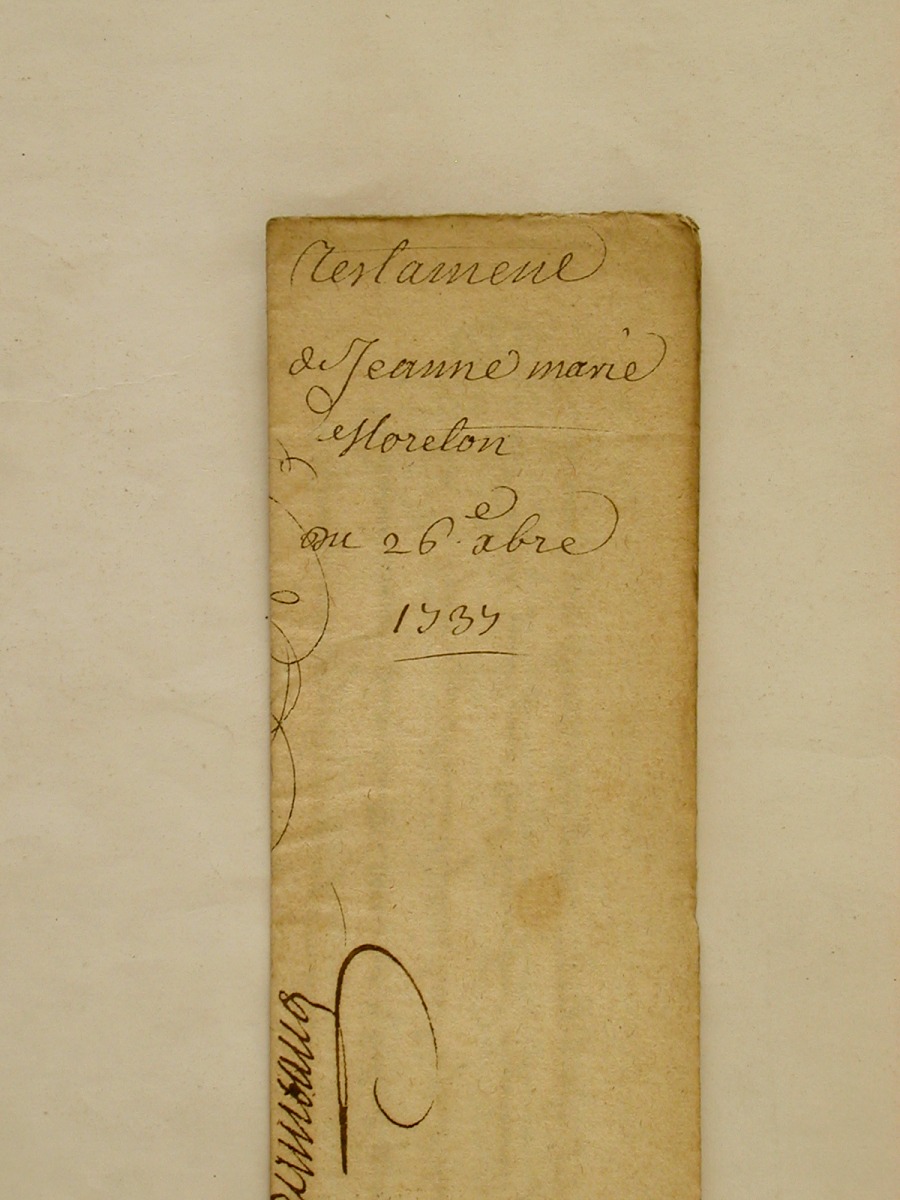 Testament
de Jeanne marie
Moreton
Du 26.e xbre
1737